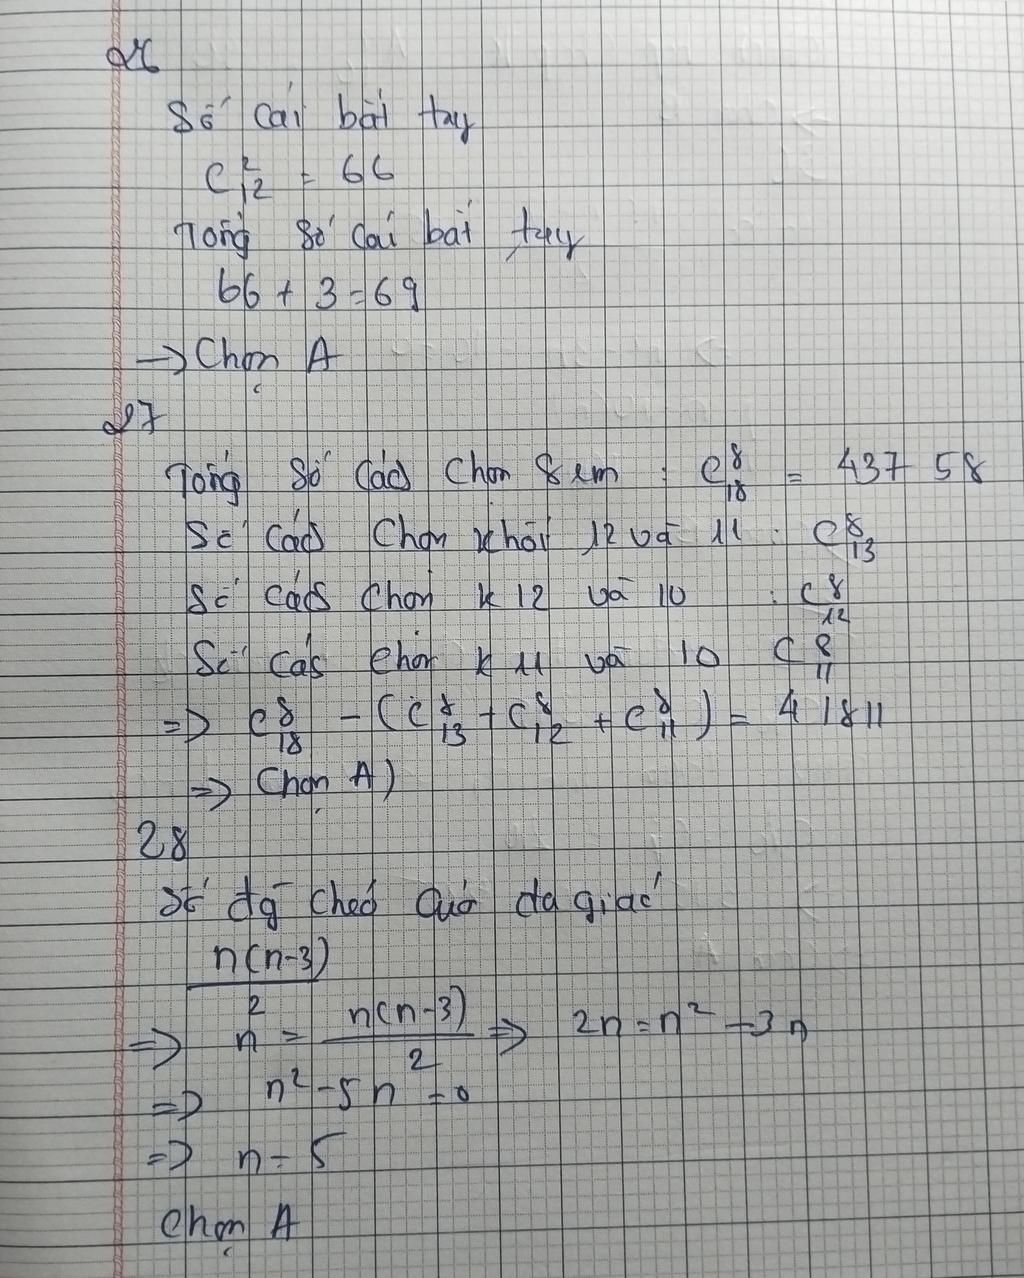 26
Số cái bắt tay
C²₁₂ = 66
Tổng số cái bắt tay
66 + 3 = 69
→ Chọn A
27
Tổng số cách chọn 8 em : C⁸₁₈ = 43758
Số cách chọn khối 12 và 11 : C⁸₁₃
Số cách chọn k 12 và 10 : C⁸₁₂
Số cách chọn k 11 và 10 C⁸₁₁
=> C⁸₁₈ - (C⁸₁₃ + C⁸₁₂ + C⁸₁₁) = 41811
=> Chọn A)
28
Số đg chéo của đa giác
n(n-3)/2
=> n = n(n-3)/2 => 2n = n² - 3n
=> n² - 5n = 0
=> n = 5
Chọn A